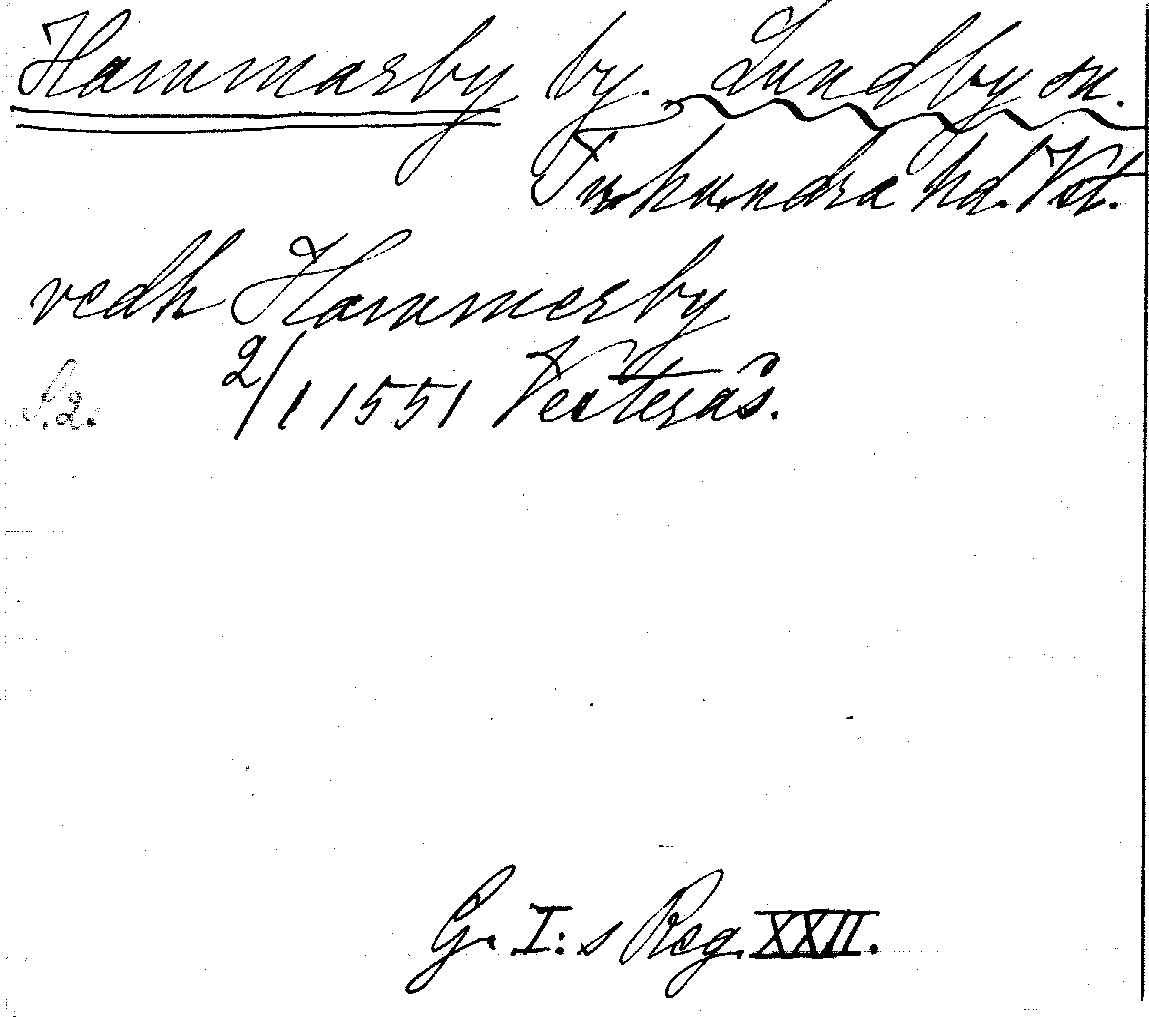 Hammarby by. Lundby sn.
Tuhundra hd. Vst.
vedh Hammerby
S.2. 2/1 1551 Vesterås.
G. I:s Reg. XXII.